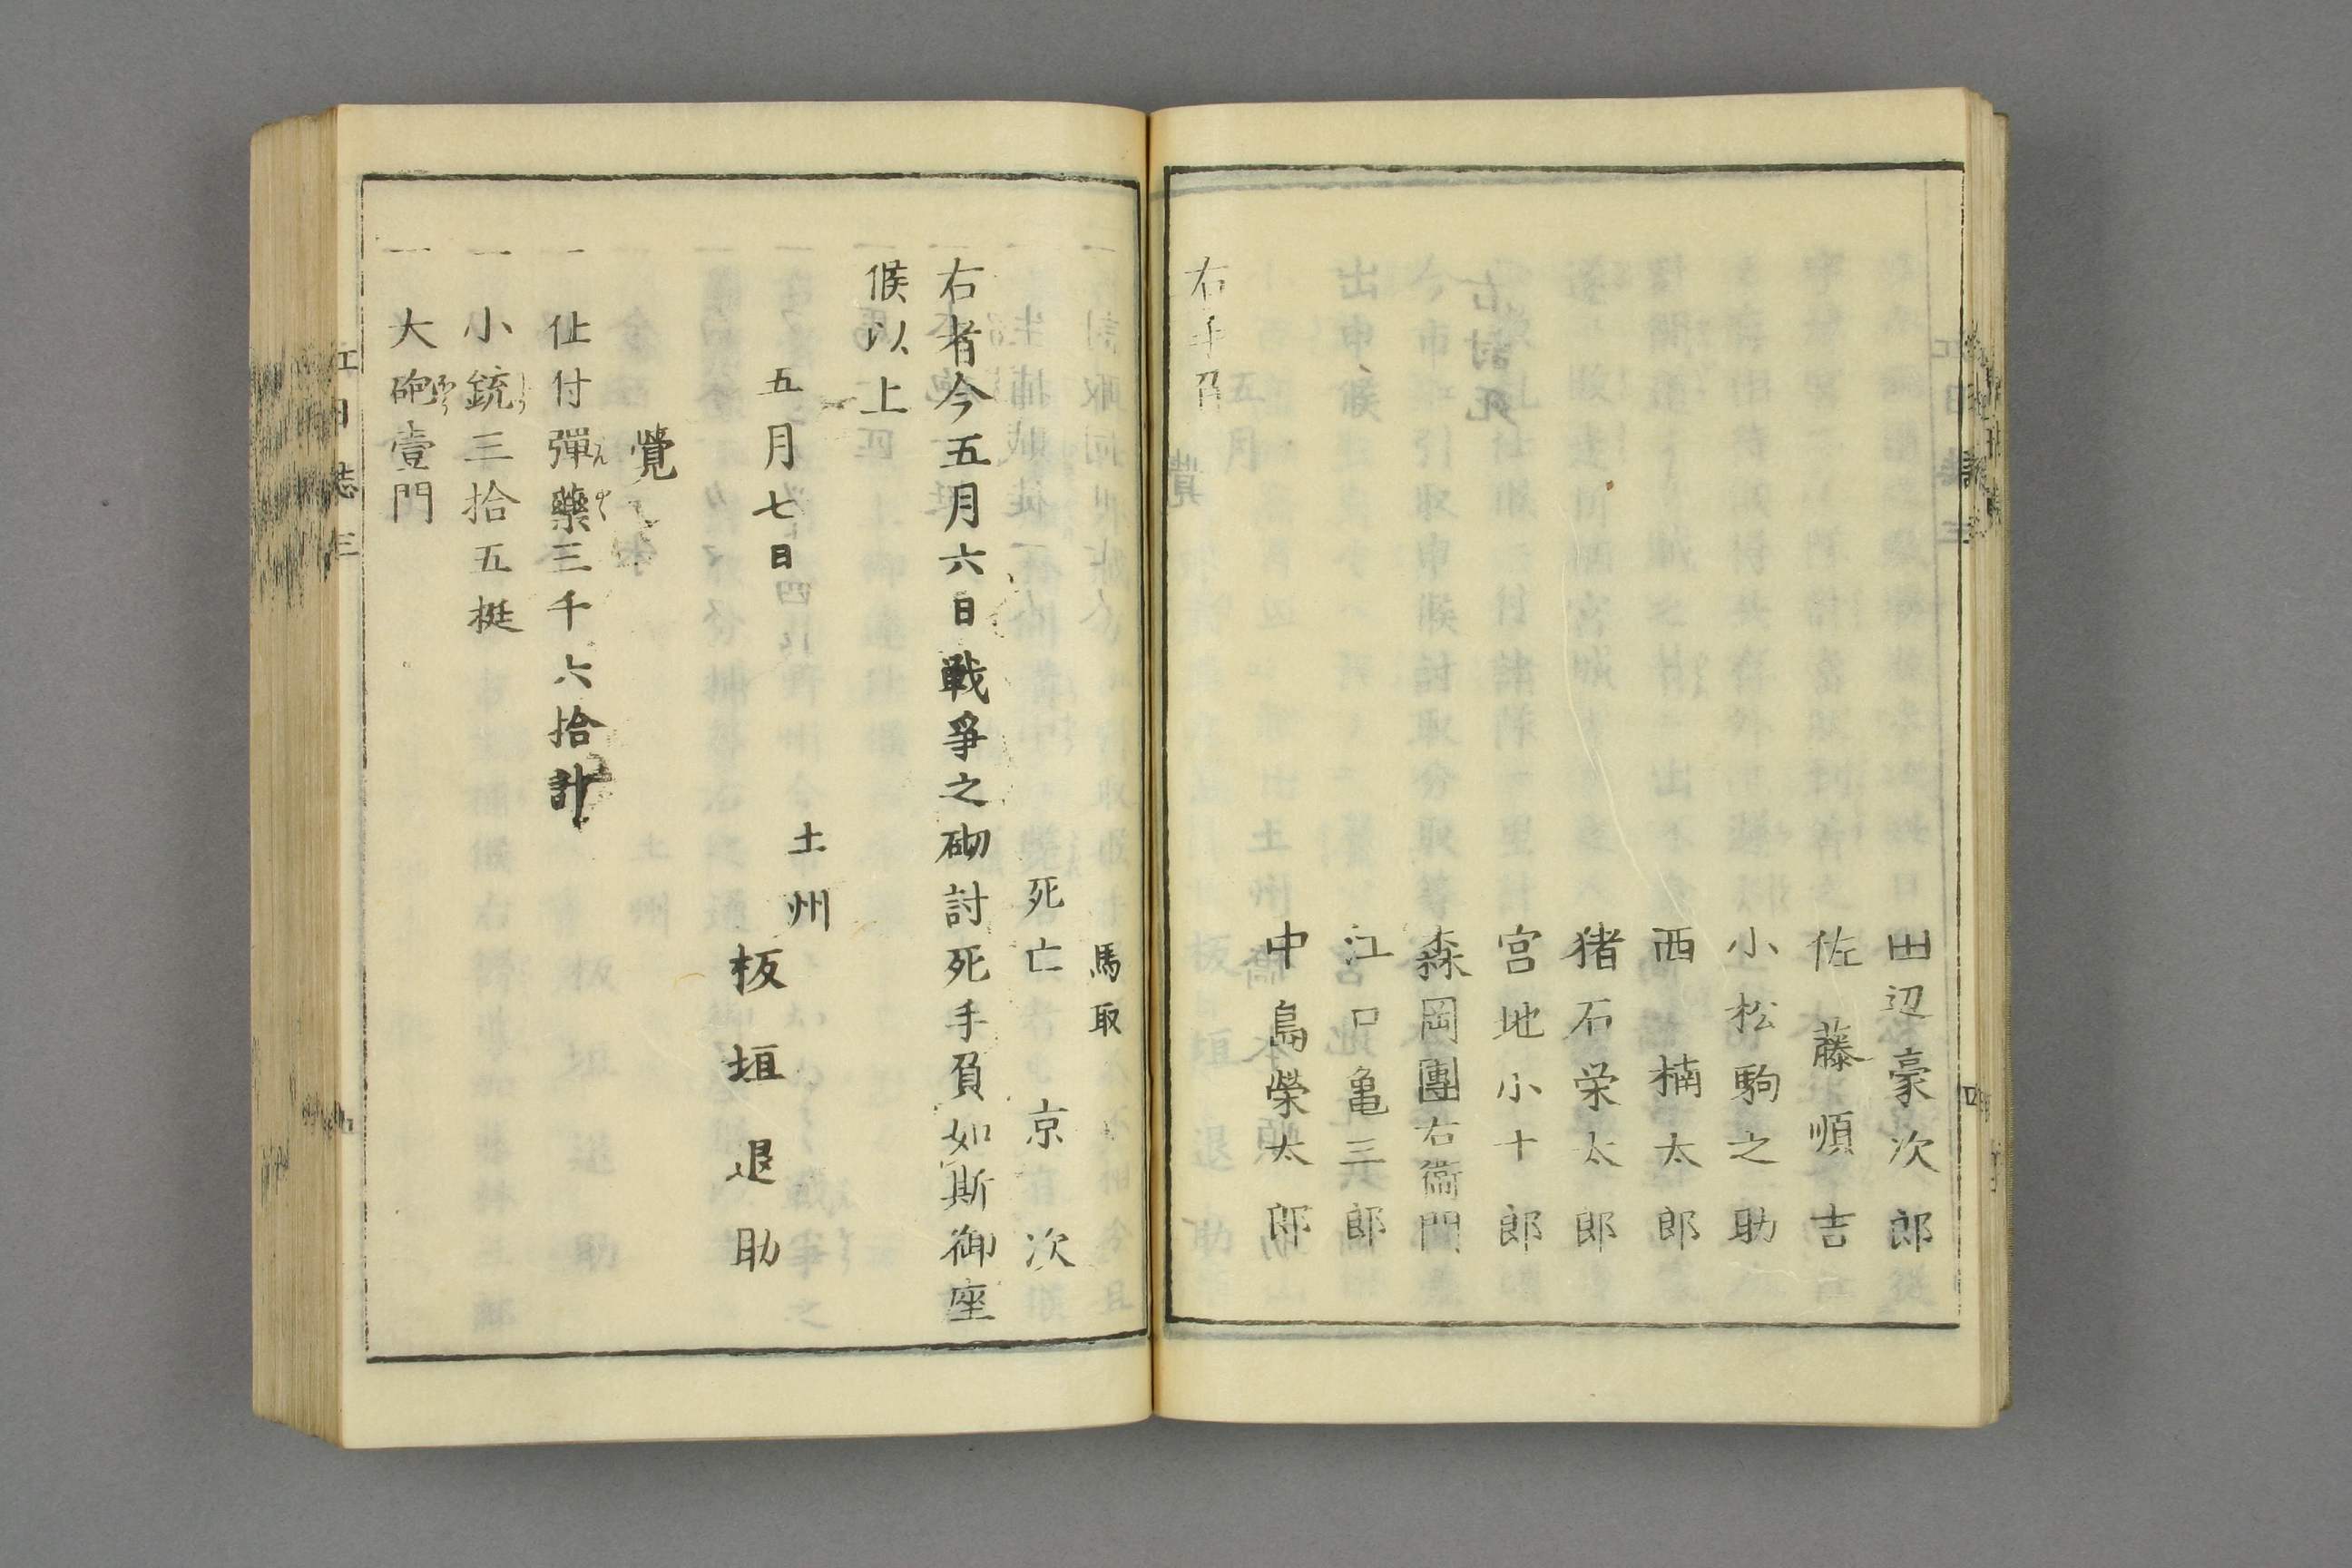 田辺豪次郎
佐藤順吉
小松駒之助
西楠太郎
猪石栄太郎
宮地小十郎
森岡團右衞門
江口亀三郎
中島榮太郎
右手負
馬取
死亡 京次
右者今五月六日戦爭之砌討死手負如斯御座
候以上
五月七日
土州
板垣退助
覺
一 仕付彈藥三千六拾計
一 小銃三拾五挺
一 大砲壹門
江日誌三